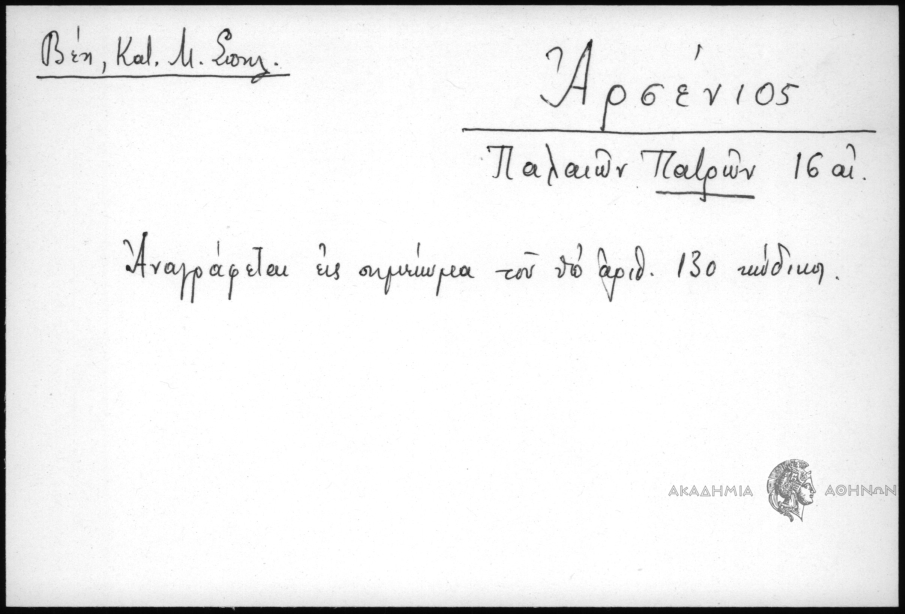 Βέη, Κατ. Μ. Σπηλ.
Ἀρσένιος
Παλαιῶν Πατρῶν 16 αἰ.
Ἀναγράφεται εἰς σημείωμα τοῦ ὑπ' ἀριθ. 130 κώδικος.
ΑΚΑΔΗΜΙΑ ΑΘΗΝΩΝ